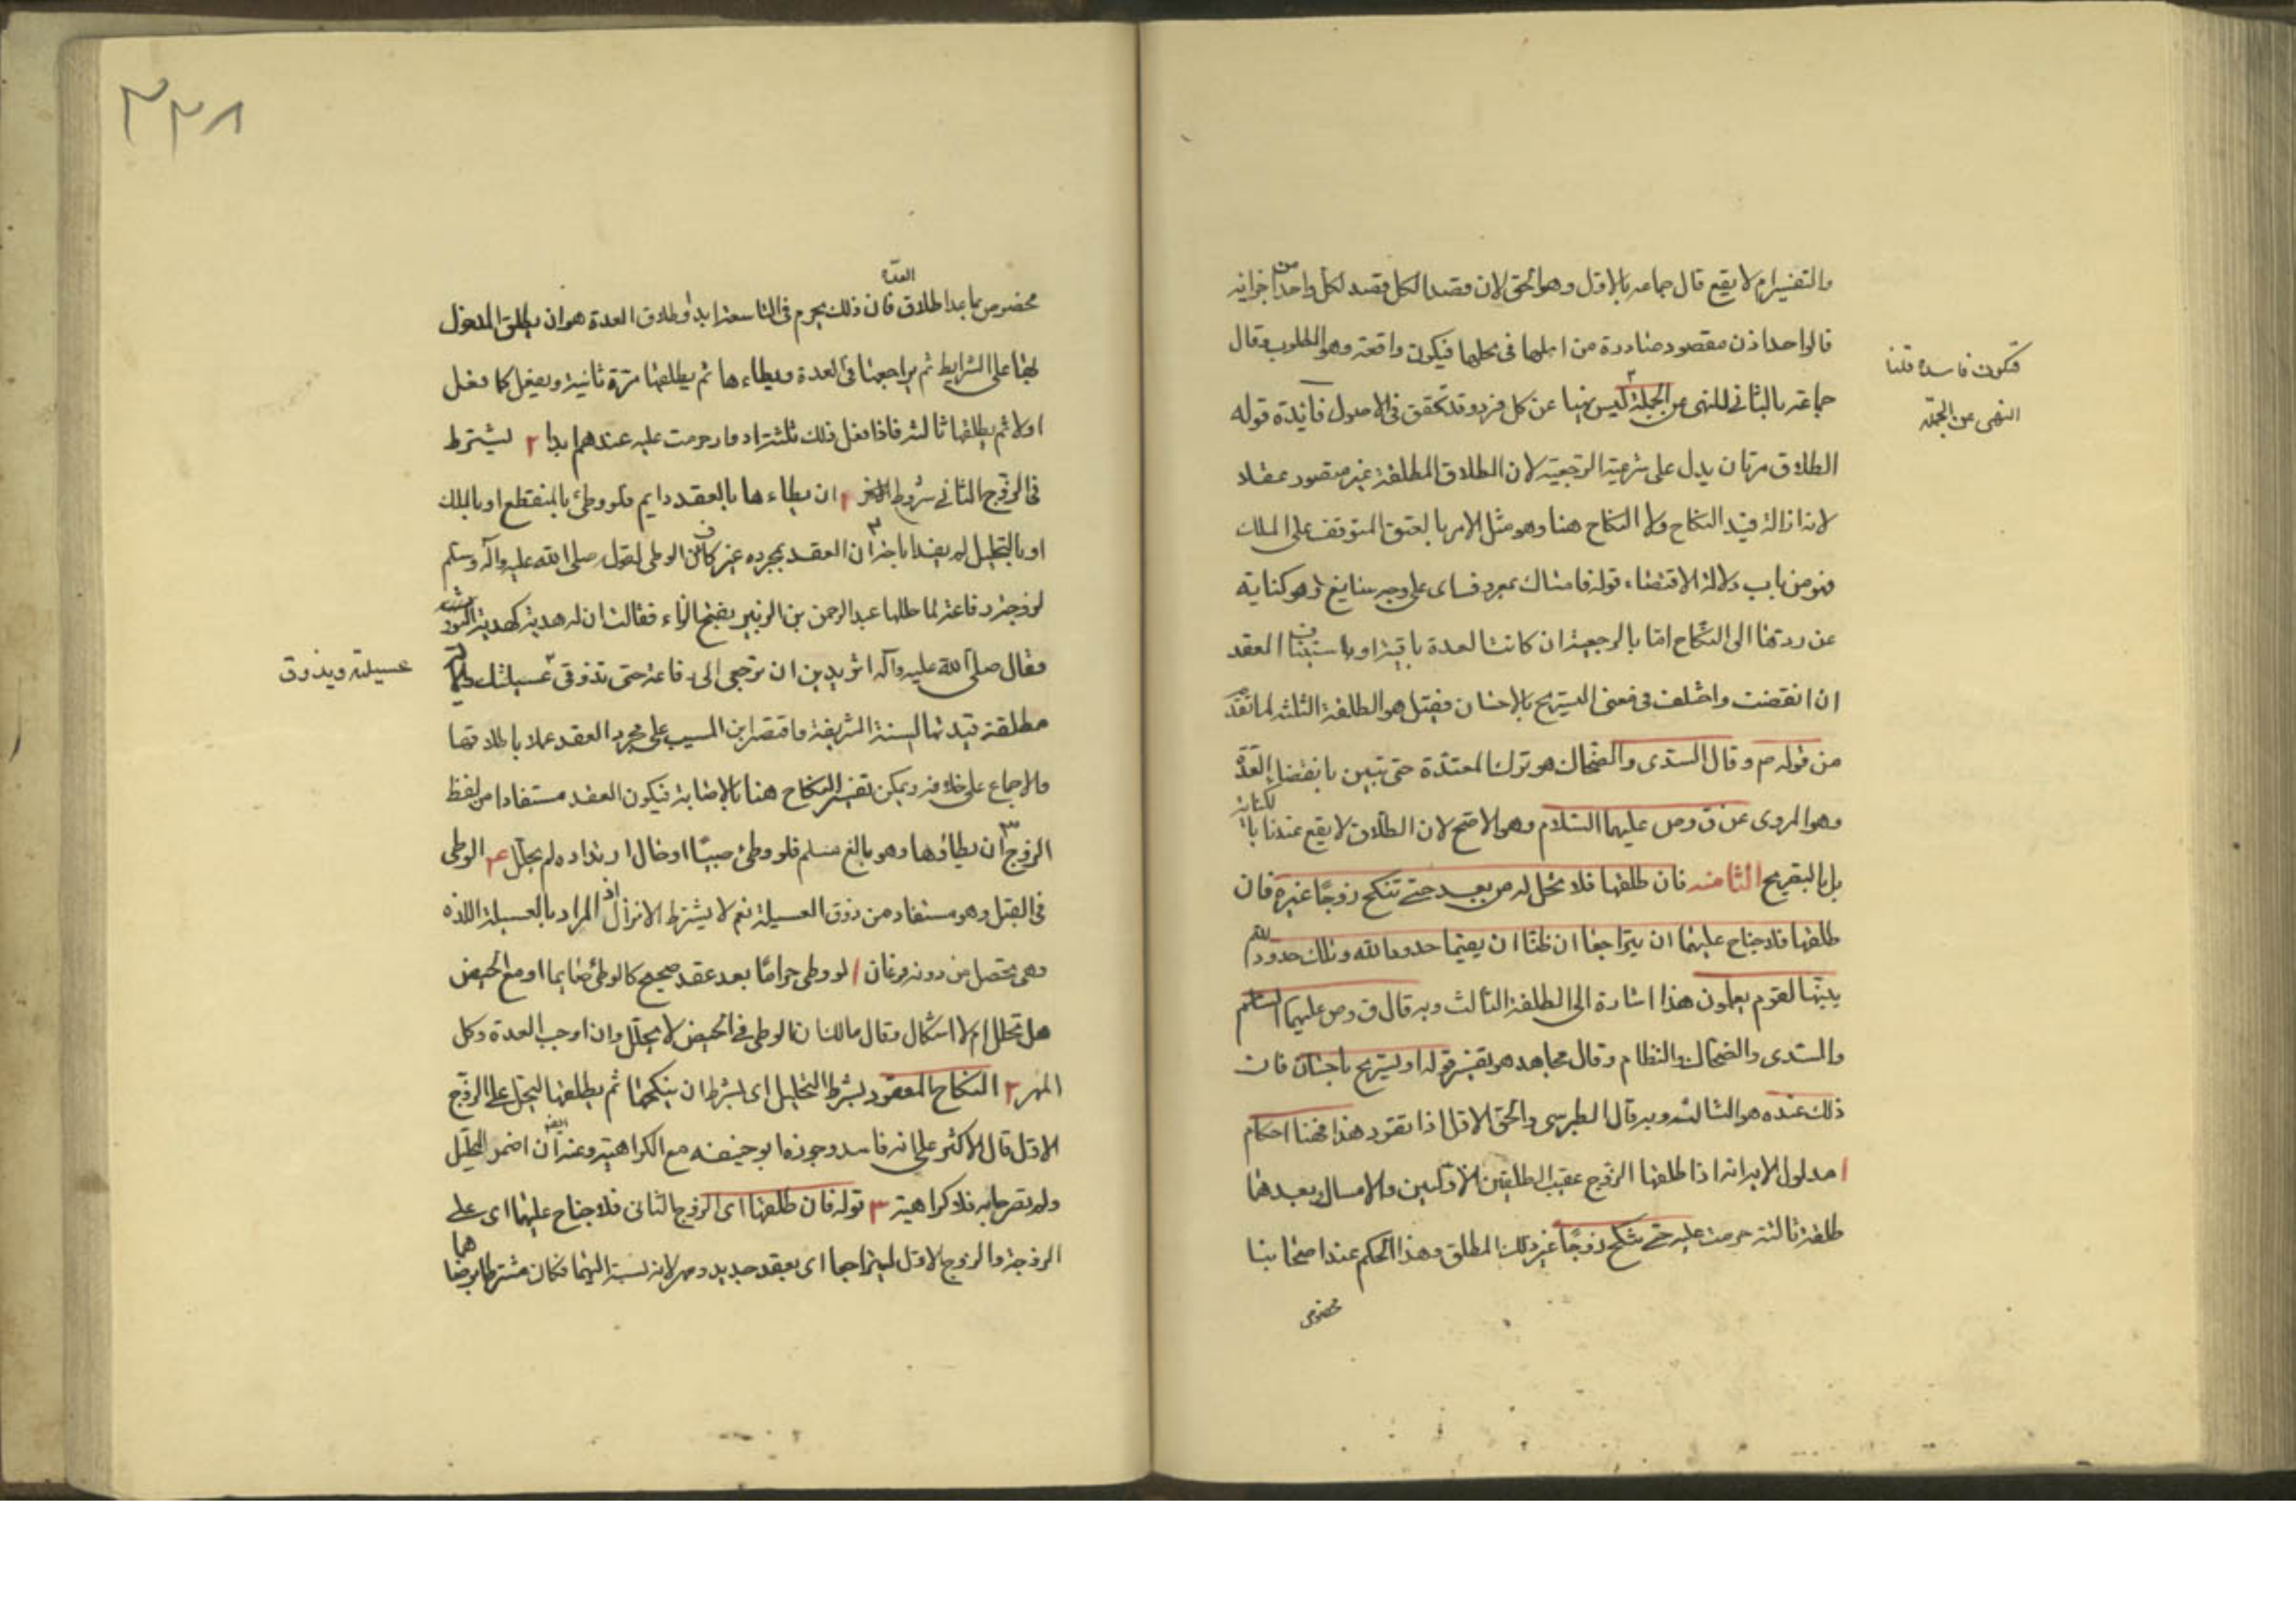 والتفسير ام لا يقع قال جماعه بالاول وهو الحق لان قصد الكل قصد لكل واحد من اجزائه
فالواحد اذن مقصودة صادرة من اهلها فى محلها فيكون واقعة وهو المطلوب وقال
جماعة بالثانى للنهى عن الجملة ليس نهيا عن كل فرد وقد تحقق فى الاصول فائدة قوله
فتكون فاسدة قلنا
النهى عن الجملة
الطلاق مرتان يدل على شرعية الرجعية لان الطلاق المطلقة غير مقصود عقلا
لانه ازالة قيد النكاح ولا النكاح هنا وهو مثل الامر بالعتق المتوقف على الملك
فهو من باب دلالة الاقتضاء قوله فامساك بمعروف اى على وجه سايغ وهو كناية
عن ردتها الى النكاح اما بالرجعية ان كانت العدة باقية او باستيناف العقد
ان انقضت واختلف فى معنى التسريح بالاحسان فقيل هو الطلقة الثلثه لما تقدم
من قوله م وقال السدى والضحاك هو ترك المعتدة حتى تبين بانقضاء العدة
وهو المروى عن ق وص عليهما السلام وهو الاصح لان الطلاق لا يقع عندنا بالكناية
بل بالتصريح الثامنه فان طلقها فلا تحل له من بعد حتى تنكح زوجًا غيره فان
طلقها فلا جناح عليهما ان يتراجعا ان ظنا ان يقيما حدود الله وتلك حدود الله
يبينها لقوم يعلمون هذا اشارة الى الطلقة الثالث وبه قال ق وص عليهما السلم
والسدى والضحاك والنظام وقال مجاهد هو تفسير قوله او تسريح باحسان فان
ذلك عنده هو الثالثه وبه قال الطبرسى والحق الاول اذا تقرر هذا فهنا احكام
ا مدلول الاية انه اذا طلقها الزوج عقيب الطلقتين الاوليين والامساك بعدهما
طلقة ثالثة حرمت عليه حتى تنكح زوجًا غير ذلك المطلق وهذا الحكم عند اصحابنا
مخصوص
٣٣٨
مخصوص بما عدا طلاق العدة فان ذلك يحرم فى التاسعة ابدا وطلاق العدة هو ان يطلق المدخول
بها على الشرايط ثم يراجعها فى العدة ويطاءها ثم يطلقها مرة ثانية ويفعل كما فعل
اولا ثم يطلقها ثالثه فاذا فعل ذلك ثلثة ادوار حرمت عليه عندهم ابدا ٢ يشترط
فى الزوج الثانى شروط ا ان يطاءها بالعقد دايم فلو وطئ بالمنقطع او بالملك
او بالتحليل لم يفد اباحة ٢ ان العقد بمجرده غير كاف عن الوطى لقوله صلى الله عليه وآله وسلم
لزوجة رفاعة لما طلها عبد الرحمن بن الزبير بفتح الزاء فقالت ان له هدبة كهدبة الثوب
فقال صلى الله عليه وآله اتريدين ان ترجعى الى رفاعة حتى تذوقى عسيلتك
عسيلته ويذوق
مطلقة قيدتها السنة الشريفة واقتصر ابن المسيب على مجرد العقد عملا باطلاقها
والاجماع على خلافه ويمكن تفسير النكاح هنا بالاصابة فيكون العقد مستفادا من لفظ
الزوج ٣ ان يطاؤها وهو بالغ مسلم فلو وطئ صبيًا او حال ارتداده لم يحلل ٤ الوطى
فى القبل وهو مستفاد من ذوق العسيلة نعم لا يشترط الانزال اذ المراد بالعسيلة اللذه
وهى تحصل من دونه فرعان ا لو وطى حرامًا بعد عقد صحيح كالوطئ صايما او مع الحيض
هل تحلل ام لا اشكال وقال مالك ان الوطى فى الحيض لا يحلل وان اوجب العدة وكل
المهر ٢ النكاح المعقود بشرط التحليل اى بشرط ان ينكحها ثم يطلقها ليحل على الزوج
الاول قال الاكثر على انه فاسد وجوزه ابو حنيفه مع الكراهية وعنه ايضا ان اضمر التحليل
ولم يصرحا به فلا كراهية ٣ قوله فان طلقها اى الزوج الثانى فلا جناح عليهما اى على
الزوجة والزوج الاول ليتراجعا اى بعقد جديد ومهر لانه نسبة اليهما فكان مشترطا برضاهما